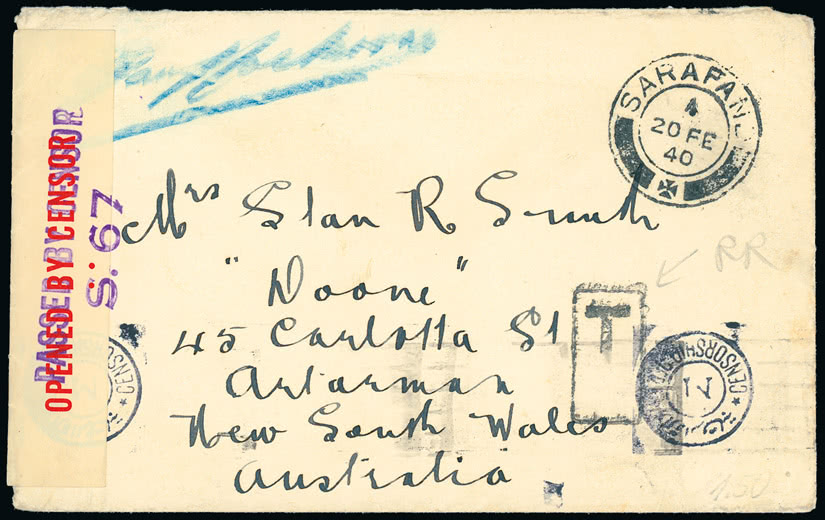 SARAFAND
4
20 FE
40
OPENED BY CENSOR
PASSED BY CENSOR
S. 67
Mrs Stan R Smith
"Doone"
45 Carlotta St
Artarmon
New South Wales
Australia
T
RR
CENSORSHIP
CENSO
1.50